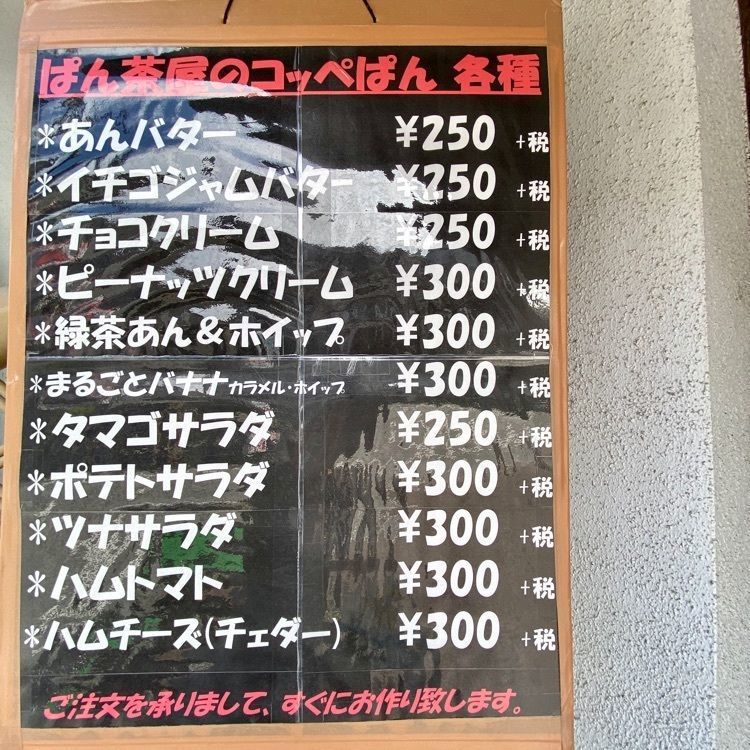 ぱん茶屋のコッペぱん 各種
*あんバター ¥250 +税
*イチゴジャムバター ¥250 +税
*チョコクリーム ¥250 +税
*ピーナッツクリーム ¥300 +税
*緑茶あん&ホイップ ¥300 +税
*まるごとバナナ カラメル・ホイップ ¥300 +税
*タマゴサラダ ¥250 +税
*ポテトサラダ ¥300 +税
*ツナサラダ ¥300 +税
*ハムトマト ¥300 +税
*ハムチーズ(チェダー) ¥300 +税
ご注文を承りまして、すぐにお作り致します。